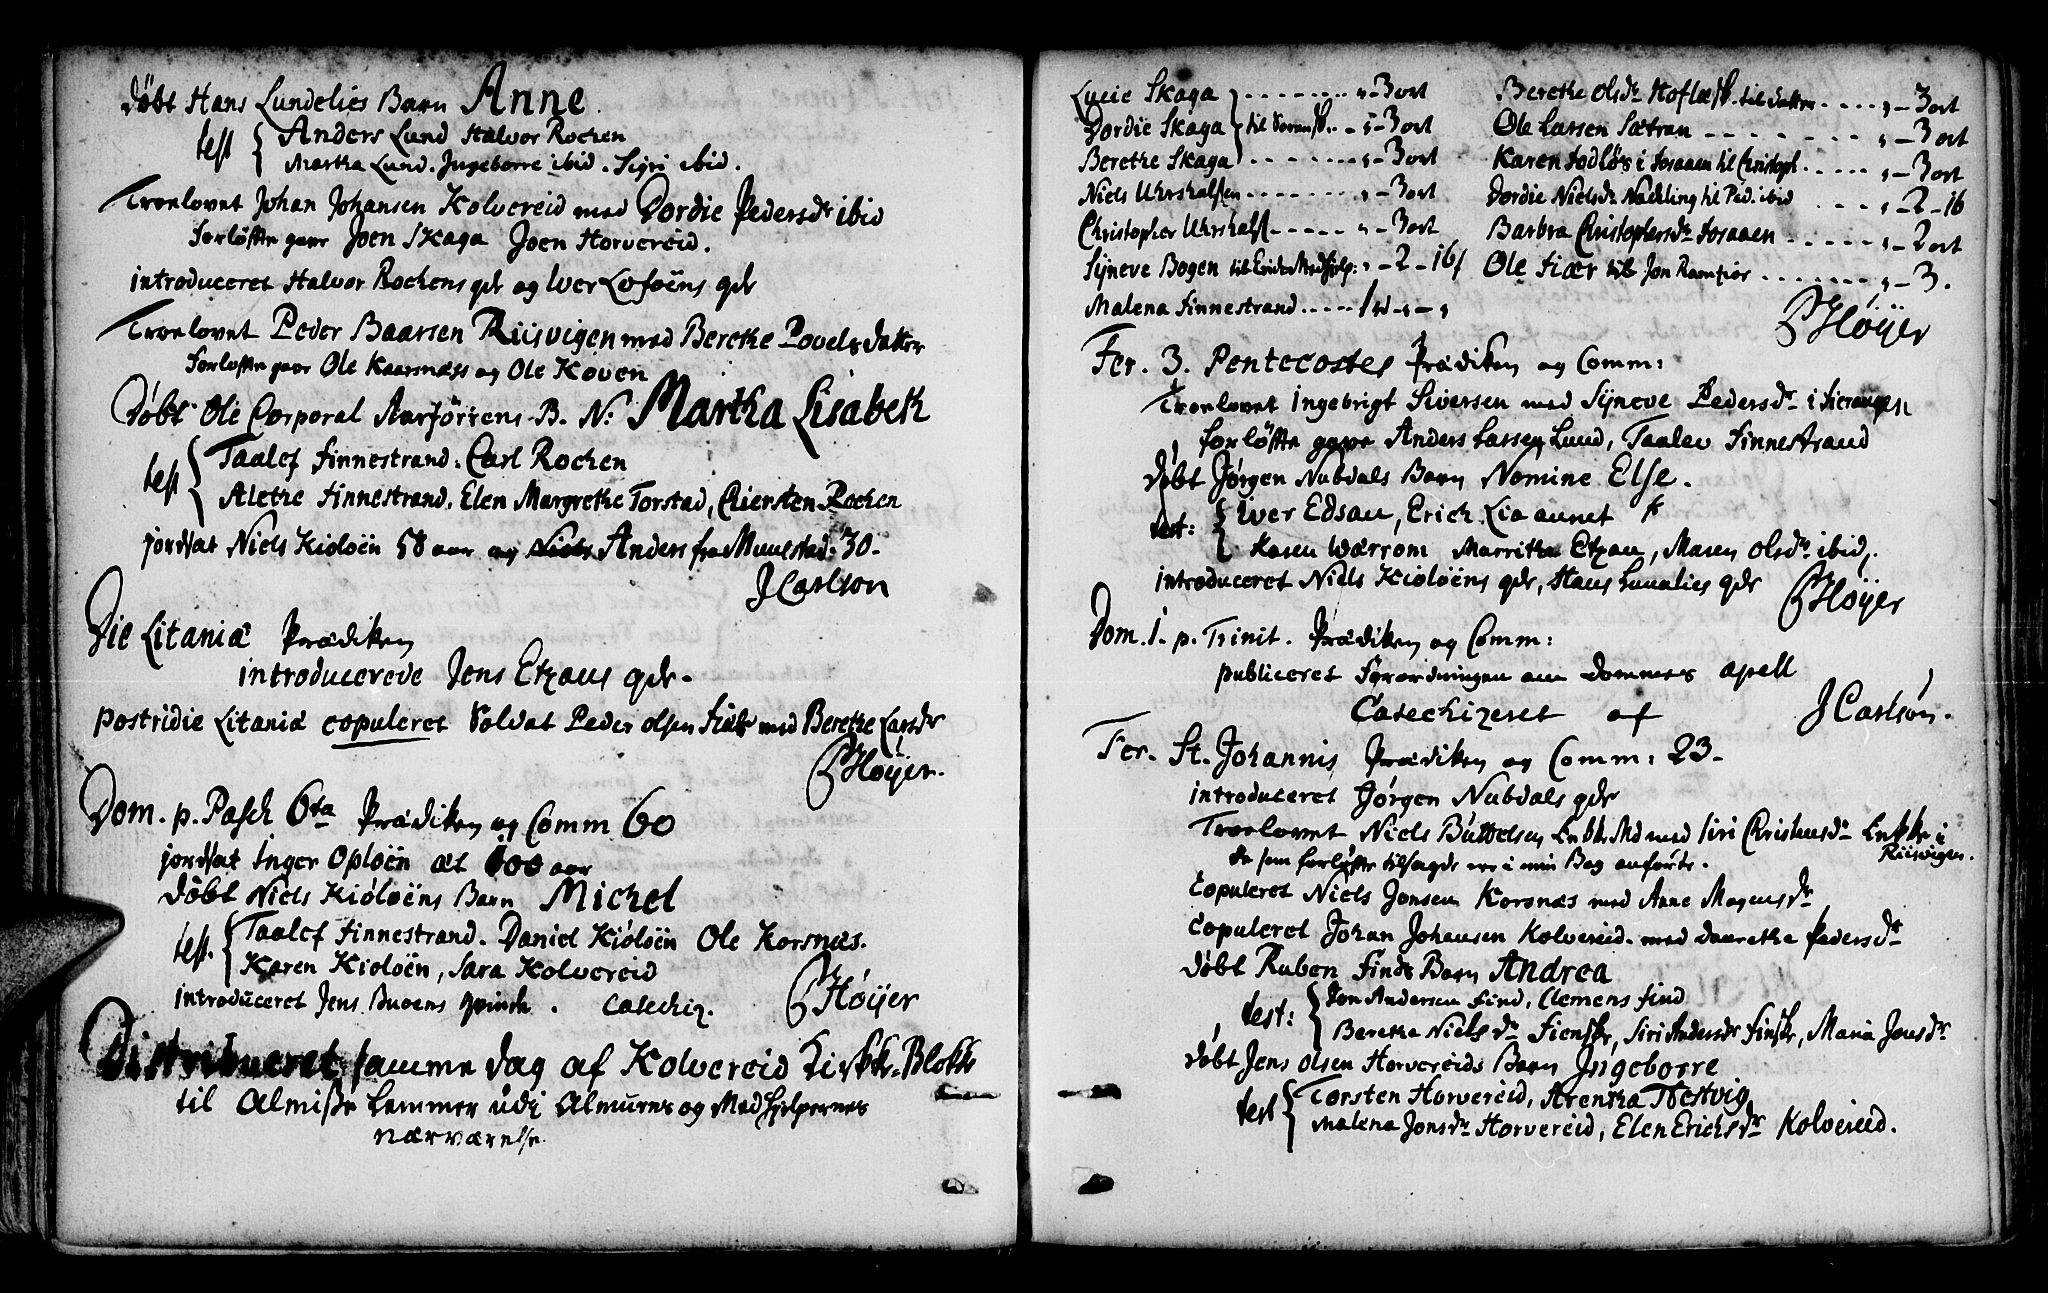 Døbt Hans Lundelies Barn Anne.
test { Anders Lund Halvor Rochen
Martha Lund. Ingeborre ibid. Sigri ibid.
Troelovet Johan Johansen Kolvereid med Dordie Pedersdr ibid
Forløffte gaer Joen Skaga Joen Horvereid.
introduceret Halvor Rochens qde og Iver Loføens qde
Troelovet Peder Baarsen Riisvigen med Berethe Povels datter
Forløffte gaer Ole Kaarsnæss og Ole Køven
Døbt Ole Corporal Aarfórsens B. N: Martha Lisabeth
test { Taalef Finnestrand. Carl Rochen
Alethe Finnestrand, Elen Margrethe Torstad, Chiersten Rochen
jordsat Niels Kiøløen 58 aar og Anders fra Muulstad. 30.
J Carlson
Die Litaniæ Prædiken
introducerede Jens Etzaus qde.
Postridie Litaniæ copuleret Soldat Peder olsen med Berethe Larsdr
P Høijer.
Dom. p. Pasch 6ta Prædiken og Comm 60
jordsat Inger Opløen æt 100 aar
Døbt Niels Kiøløens Barn Michel
test. { Taalef Finnestrand. Daniel Kiøløen Ole Korsnæs.
Karen Kiøløen, Sara Kolvereid
introduceret Jens Buoens qvinde. Catechiz. P Høijer
Distribueret samme dag af Kolvereid Kirkke-Blokk
til Almisse Lemmer udi Almuens og Medhjelpernes
nærværelse.
Lucie Skaga } - - - - - 3 ort
Dordie Skaga } til - 3 ort
Berethe Skaga } - - - - - 3 ort
Niels Uhrshalsen - - - - - 3 ort
Christopher Uhrshalss - - - - - 3 ort
Sijneve Bogen til - 2 - 16
Malena Finnestrand ..... 1
Berethe olsdr til datter .... 3 ort
Ole Larsen Sætran - - - - - 3 ort
Karen i Foraaen til Christoph ..... 3 ort
Dordie Nielsdr til Ped. ibid .... 2 - 16
Barbra Christophersdr Foraaen ..... 2 ort
Ole Fiær til Jon ....... 3.
P Høijer
Fer. 3. Pentecostes Prædiken og Comm:
Troelovet Ingebrigt Siversen med Sijneve Pedersdr i
forløffte gaer Anders Larsen Lund, Taalev Finnestrand
Døbt Jørgen Nubdals Barn Nomine Else.
test: { Iver Edsau, Erich Lia annet
Karen Wærrom Marritha Etzau, Maren olsdr ibid.
introduceret Niels Kiøløens qde, Hans Lundlies qde P Høijer
Dom. 1. p. Trinit. Prædiken og Comm:
publiceret Forordningen om dommers apell
Catechizeret af J Carlson.
Fer. St. Johannis Prædiken og Comm: 23.
introduceret Jørgen Nubdals qde
Troelovet Niels Enkkemd med Siri Christensdr Enkke i
Riisvigen.
de som forløffte tilsagde ere i min Bog anførte.
Copuleret Niels Jonsen Korsnæs med Anne Mogensdr
Copuleret Johan Johansen Kolvereid. med Daarethe Pedersdr
Døbt Ruben Finds Barn Andrea
test: { Jon Andersen Find, Clemens Find
Berethe Nielsdr Fiensk, Siri Andersdr Finsk, Maria Jonsdr
Døbt Jens olsen Horvereids Barn Ingeborre
test { Torsten Horvereid, Arentha Tiestvig
Malena Jonsdr Horvereid, Elen Erichsdr Kolvereid.